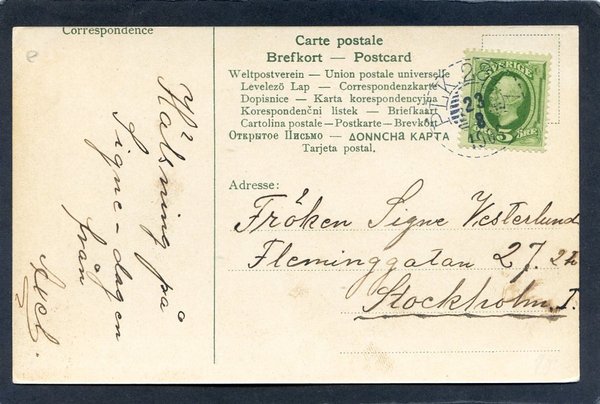 Correspondence
Carte postale
Brefkort — Postcard
Weltpostverein — Union postale universelle
Levelező Lap — Correspondenzkarte
Dopisnice — Karta korespondencyjna
Korespondenční listek — Briefkaart
Cartolina postale — Postkarte — Brevkort
Открытое Письмо — ΔΟΝΝCΗΑ ΚΑΡΤΑ
Tarjeta postal.
SVERIGE
5 ÖRE
23
8
Adresse:
Fröken Signe Vesterlund
Fleminggatan 27. 2
Stockholm I.
Hälsning på
Signe-dagen
från
Axel.